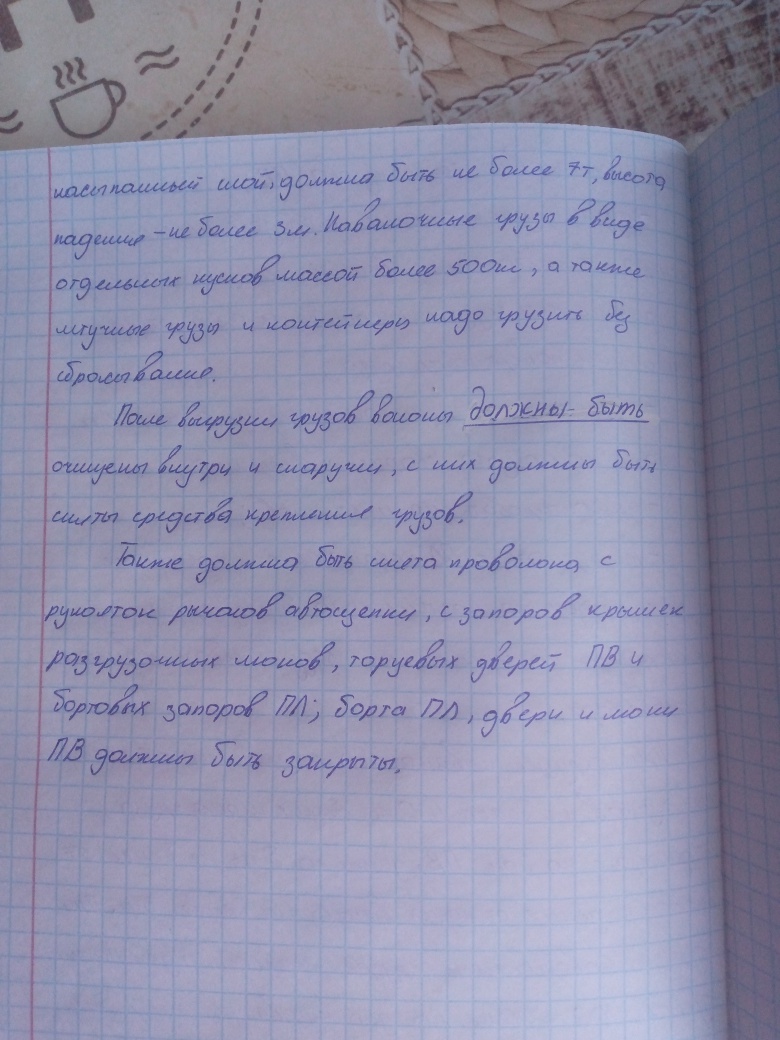 насыпанный слой, должна быть не более 7т, высота
падения – не более 3м. Навалочные грузы в виде
отдельных кусков массой более 500кг, а также
штучные грузы и контейнеры надо грузить без
сбрасывания.
После выгрузки грузов вагоны должны быть
очищены внутри и снаружи, с них должны быть
сняты средства крепления грузов.
Также должна быть снята проволока с
рукояток рычагов автосцепки, с запоров крышек
разгрузочных люков, торцевых дверей ПВ и
бортовых запоров ПЛ; борта ПЛ, двери и люки
ПВ должны быть закрыты.